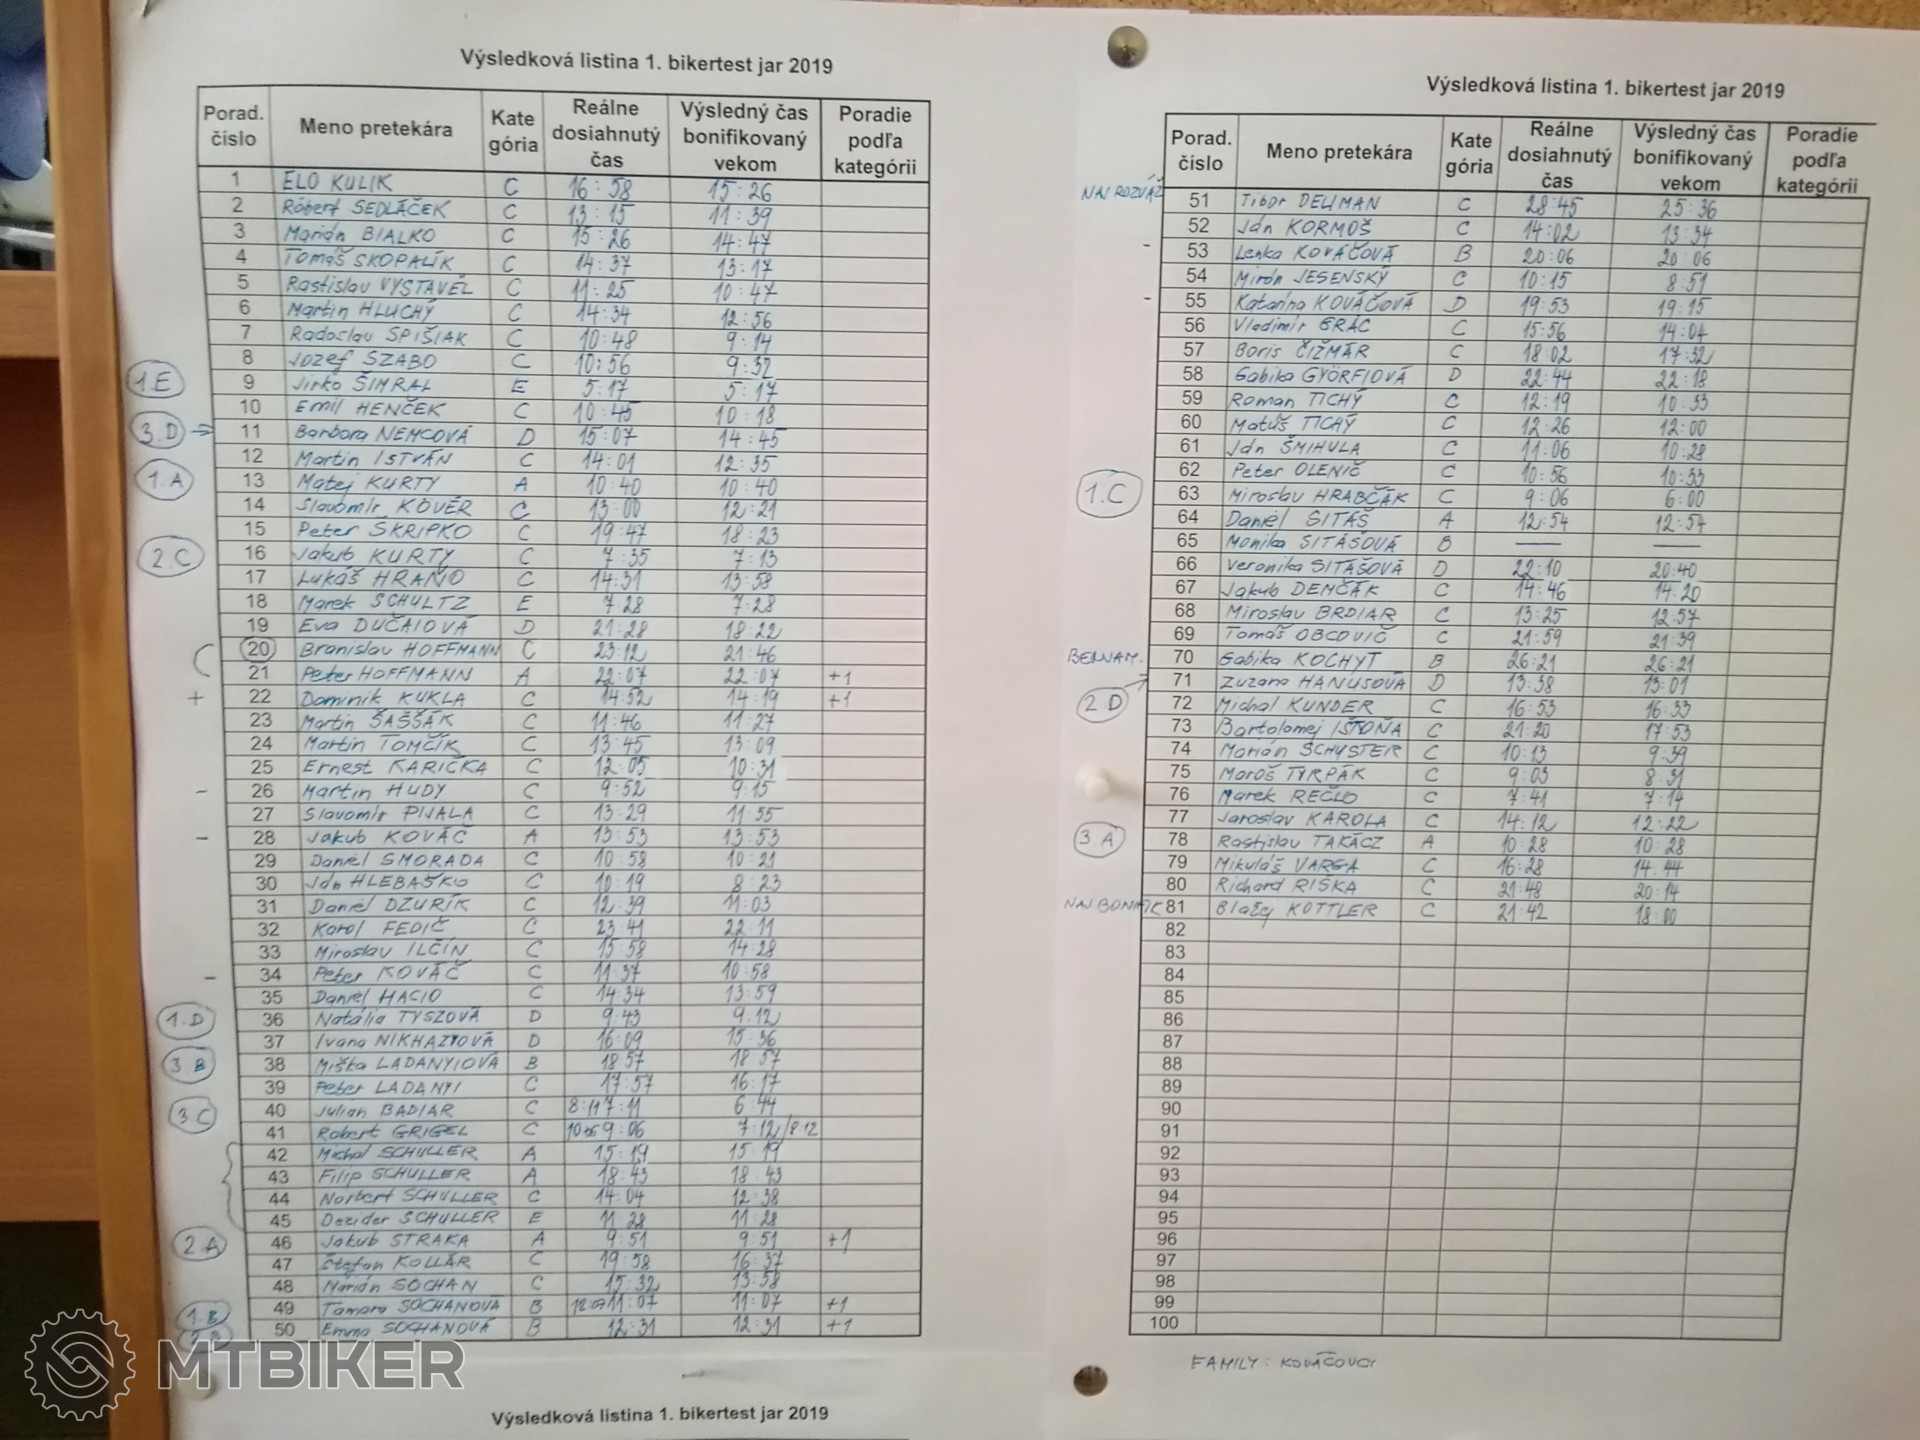 Výsledková listina 1. bikertest jar 2019
Porad. číslo Meno pretekára Kate gória Reálne dosiahnutý čas Výsledný čas bonifikovaný vekom Poradie podľa kategórii
1 ELO KULIK C 16:58 15:26
2 Róbert SEDLÁČEK C 13:15 11:39
3 Marián BIALKO C 15:26 14:47
4 Tomáš SKOPALÍK C 14:37 13:17
5 Rastislav VYSTAVĚL C 11:25 10:47
6 Martin HLUCHÝ C 14:34 12:56
7 Radoslav SPIŠIAK C 10:48 9:14
8 Jozef SZABO C 10:56 9:32
1.E 9 Jirko ŠIMRAL E 5:17 5:17
10 Emil HENČEK C 10:45 10:18
3.D → 11 Barbora NEMCOVÁ D 15:07 14:45
12 Martin ISTVÁN C 14:01 12:35
1.A 13 Matej KURTY A 10:40 10:40
14 Slavomír KÖVÉR C 13:00 12:21
15 Peter ŠKRIPKO C 19:47 18:23
2.C 16 Jakub KURTY C 7:35 7:13
17 Lukáš HRAŇO C 14:31 13:58
18 Marek SCHULTZ E 7:28 7:28
19 Eva DUČAIOVÁ D 21:28 18:22
20 Branislav HOFFMANN C 23:12 21:46
21 Peter HOFFMANN A 22:07 22:07 +1
+ 22 Dominik KUKLA C 14:52 14:19 +1
23 Martin ŠAŠŠÁK C 11:46 11:27
24 Martin TOMČÍK C 13:45 13:09
25 Ernest KARIČKA C 12:05 10:31
- 26 Martin HUDY C 9:52 9:15
27 Slavomír PIJALA C 13:29 11:55
- 28 Jakub KOVÁČ A 13:53 13:53
29 Daniel SMORADA C 10:58 10:21
30 Ján HLEBAŠKO C 10:19 8:23
31 Daniel DZURÍK C 12:39 11:03
32 Karol FEDIČ C 23:41 22:11
33 Miroslav ILČÍN C 15:58 14:28
- 34 Peter KOVÁČ C 11:37 10:58
35 Daniel HACIO C 14:34 13:59
1.D 36 Natália TYSZOVÁ D 9:43 9:12
37 Ivana NIKHAZYOVÁ D 16:09 15:36
3 B 38 Miška LADANYIOVÁ B 18 57 18 57
39 Peter LADANYI C 17:57 16:17
3.C 40 Julian BADIAR C 8:11 7:11 6:44
41 Robert GRIGEL C 10:06 9:06 7:12/8:12
42 Michal SCHULLER A 15:19 15:19
43 Filip SCHULLER A 18:43 18:43
44 Norbert SCHULLER C 14:04 12:38
45 Dezider SCHULLER E 11 28 11:28
2.A 46 Jakub STRAKA A 9:51 9 51 +1
47 Štefan KOLLÁR C 19:58 16:37
48 Marián SOCHAN C 15:32 13:58
1.B 49 Tamara SOCHANOVÁ B 12:07 11:07 11:07 +1
50 Emma SOCHANOVÁ B 12:31 12:31 +1
Výsledková listina 1. bikertest jar 2019
Výsledková listina 1. bikertest jar 2019
Porad. číslo Meno pretekára Kate gória Reálne dosiahnutý čas Výsledný čas bonifikovaný vekom Poradie podľa kategórii
NAJ ROZVÁŽ 51 Tibor DELIMAN C 28:45 25:36
52 Ján KORMOŠ C 14:02 13:34
- 53 Lenka KOVÁČOVÁ B 20:06 20:06
54 Mirón JESENSKÝ C 10:15 8:51
- 55 Katarína KOVÁČOVÁ D 19:53 19:15
56 Vladimír GRÁC C 15:56 14:04
57 Boris ČIŽMÁR C 18:02 17:32
58 Gabika GYÖRFIOVÁ D 22:44 22:18
59 Roman TICHÝ C 12:19 10:33
60 Matúš TICHÝ C 12:26 12:00
61 Ján ŠMIHULA C 11:06 10:28
62 Peter OLENIČ C 10:56 10:33
1.C 63 Miroslav HRABČÁK C 9:06 6:00
64 Daniel SITÁŠ A 12:54 12:54
65 Monika SITÁŠOVÁ B — —
66 Veronika SITAŠOVÁ D 22:10 20:40
67 Jakub DEMČÁK C 14:46 14:20
68 Miroslav BRDIAR C 13:25 12:57
69 Tomáš OBCOVIČ C 21:59 21:39
70 Gabika KOCHYT B 26:21 26:21
2 D 71 Zuzana HANUSOVÁ D 13:38 13:01
72 Michal KUNDER C 16:53 16:33
73 Bartolomej IŠTOŇA C 21:20 17:53
74 Marián SCHUSTER C 10:13 9:39
75 Maroš TYRPÁK C 9:03 8:31
76 Marek REČLO C 7:41 7:14
77 Jaroslav KAROLA C 14:12 12:22
3.A 78 Rastislav TAKÁCZ A 10 28 10:28
79 Mikuláš VARGA C 16:28 14.44
80 Richard RIŠKA C 21:48 20:14
NAJ BONIFIK 81 Blažej KOTTLER C 21:42 18:00
82
83
84
85
86
87
88
89
90
91
92
93
94
95
96
97
98
99
100
FAMILY: KOVÁČOVCI
MTBIKER